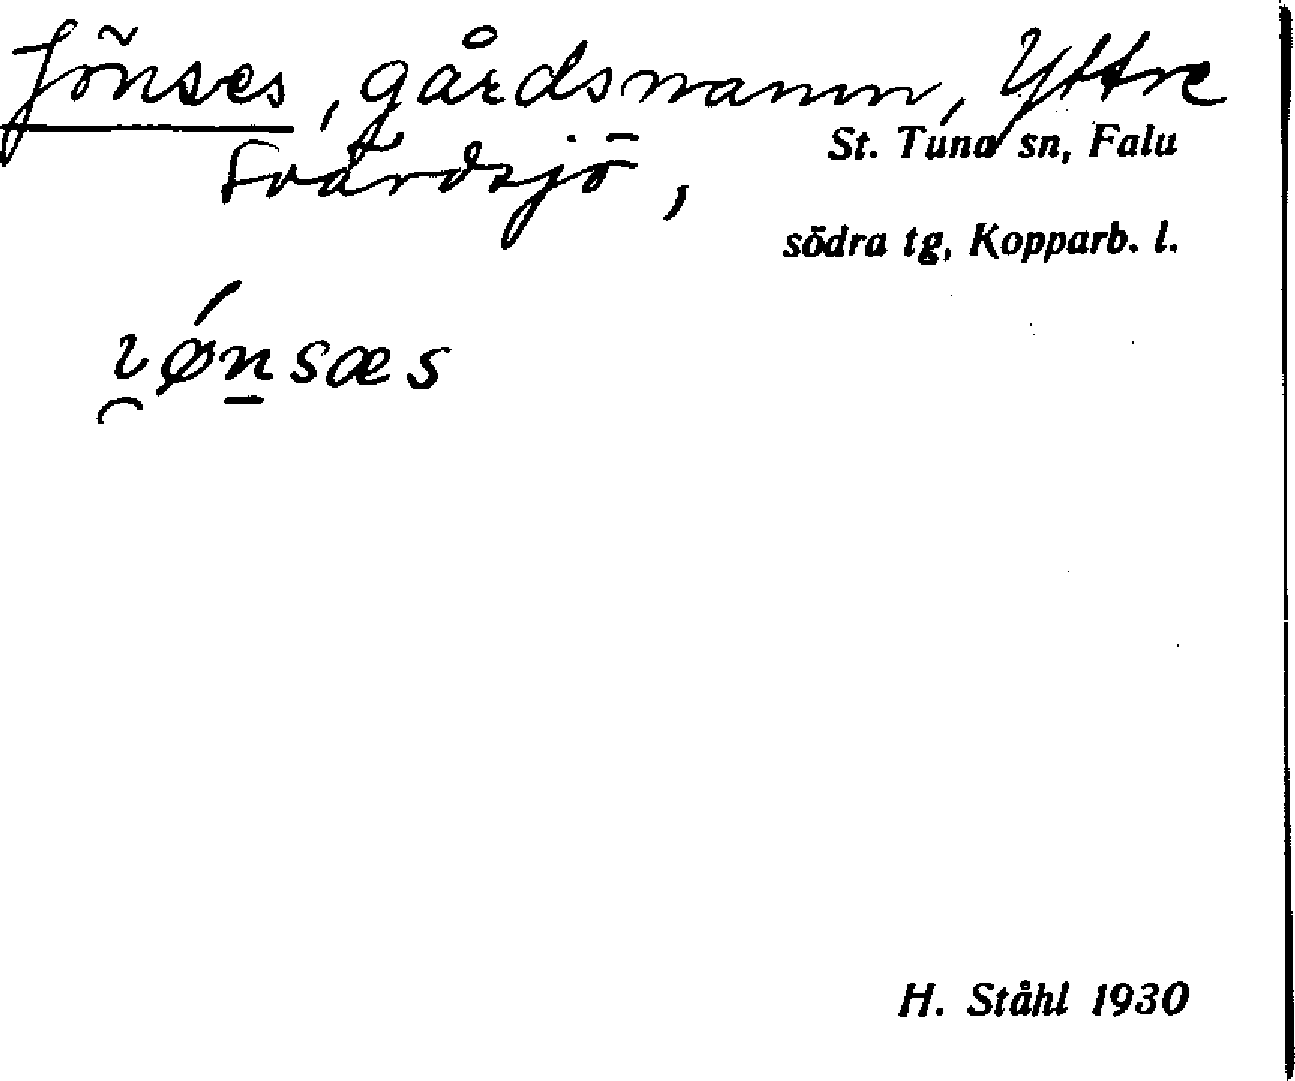 Jönses, gårdsnamn, Yttre
Svärdsjö,
St. Tuna sn, Falu
södra tg, Kopparb. l.
i̯ǿn̲sæs
H. Ståhl 1930